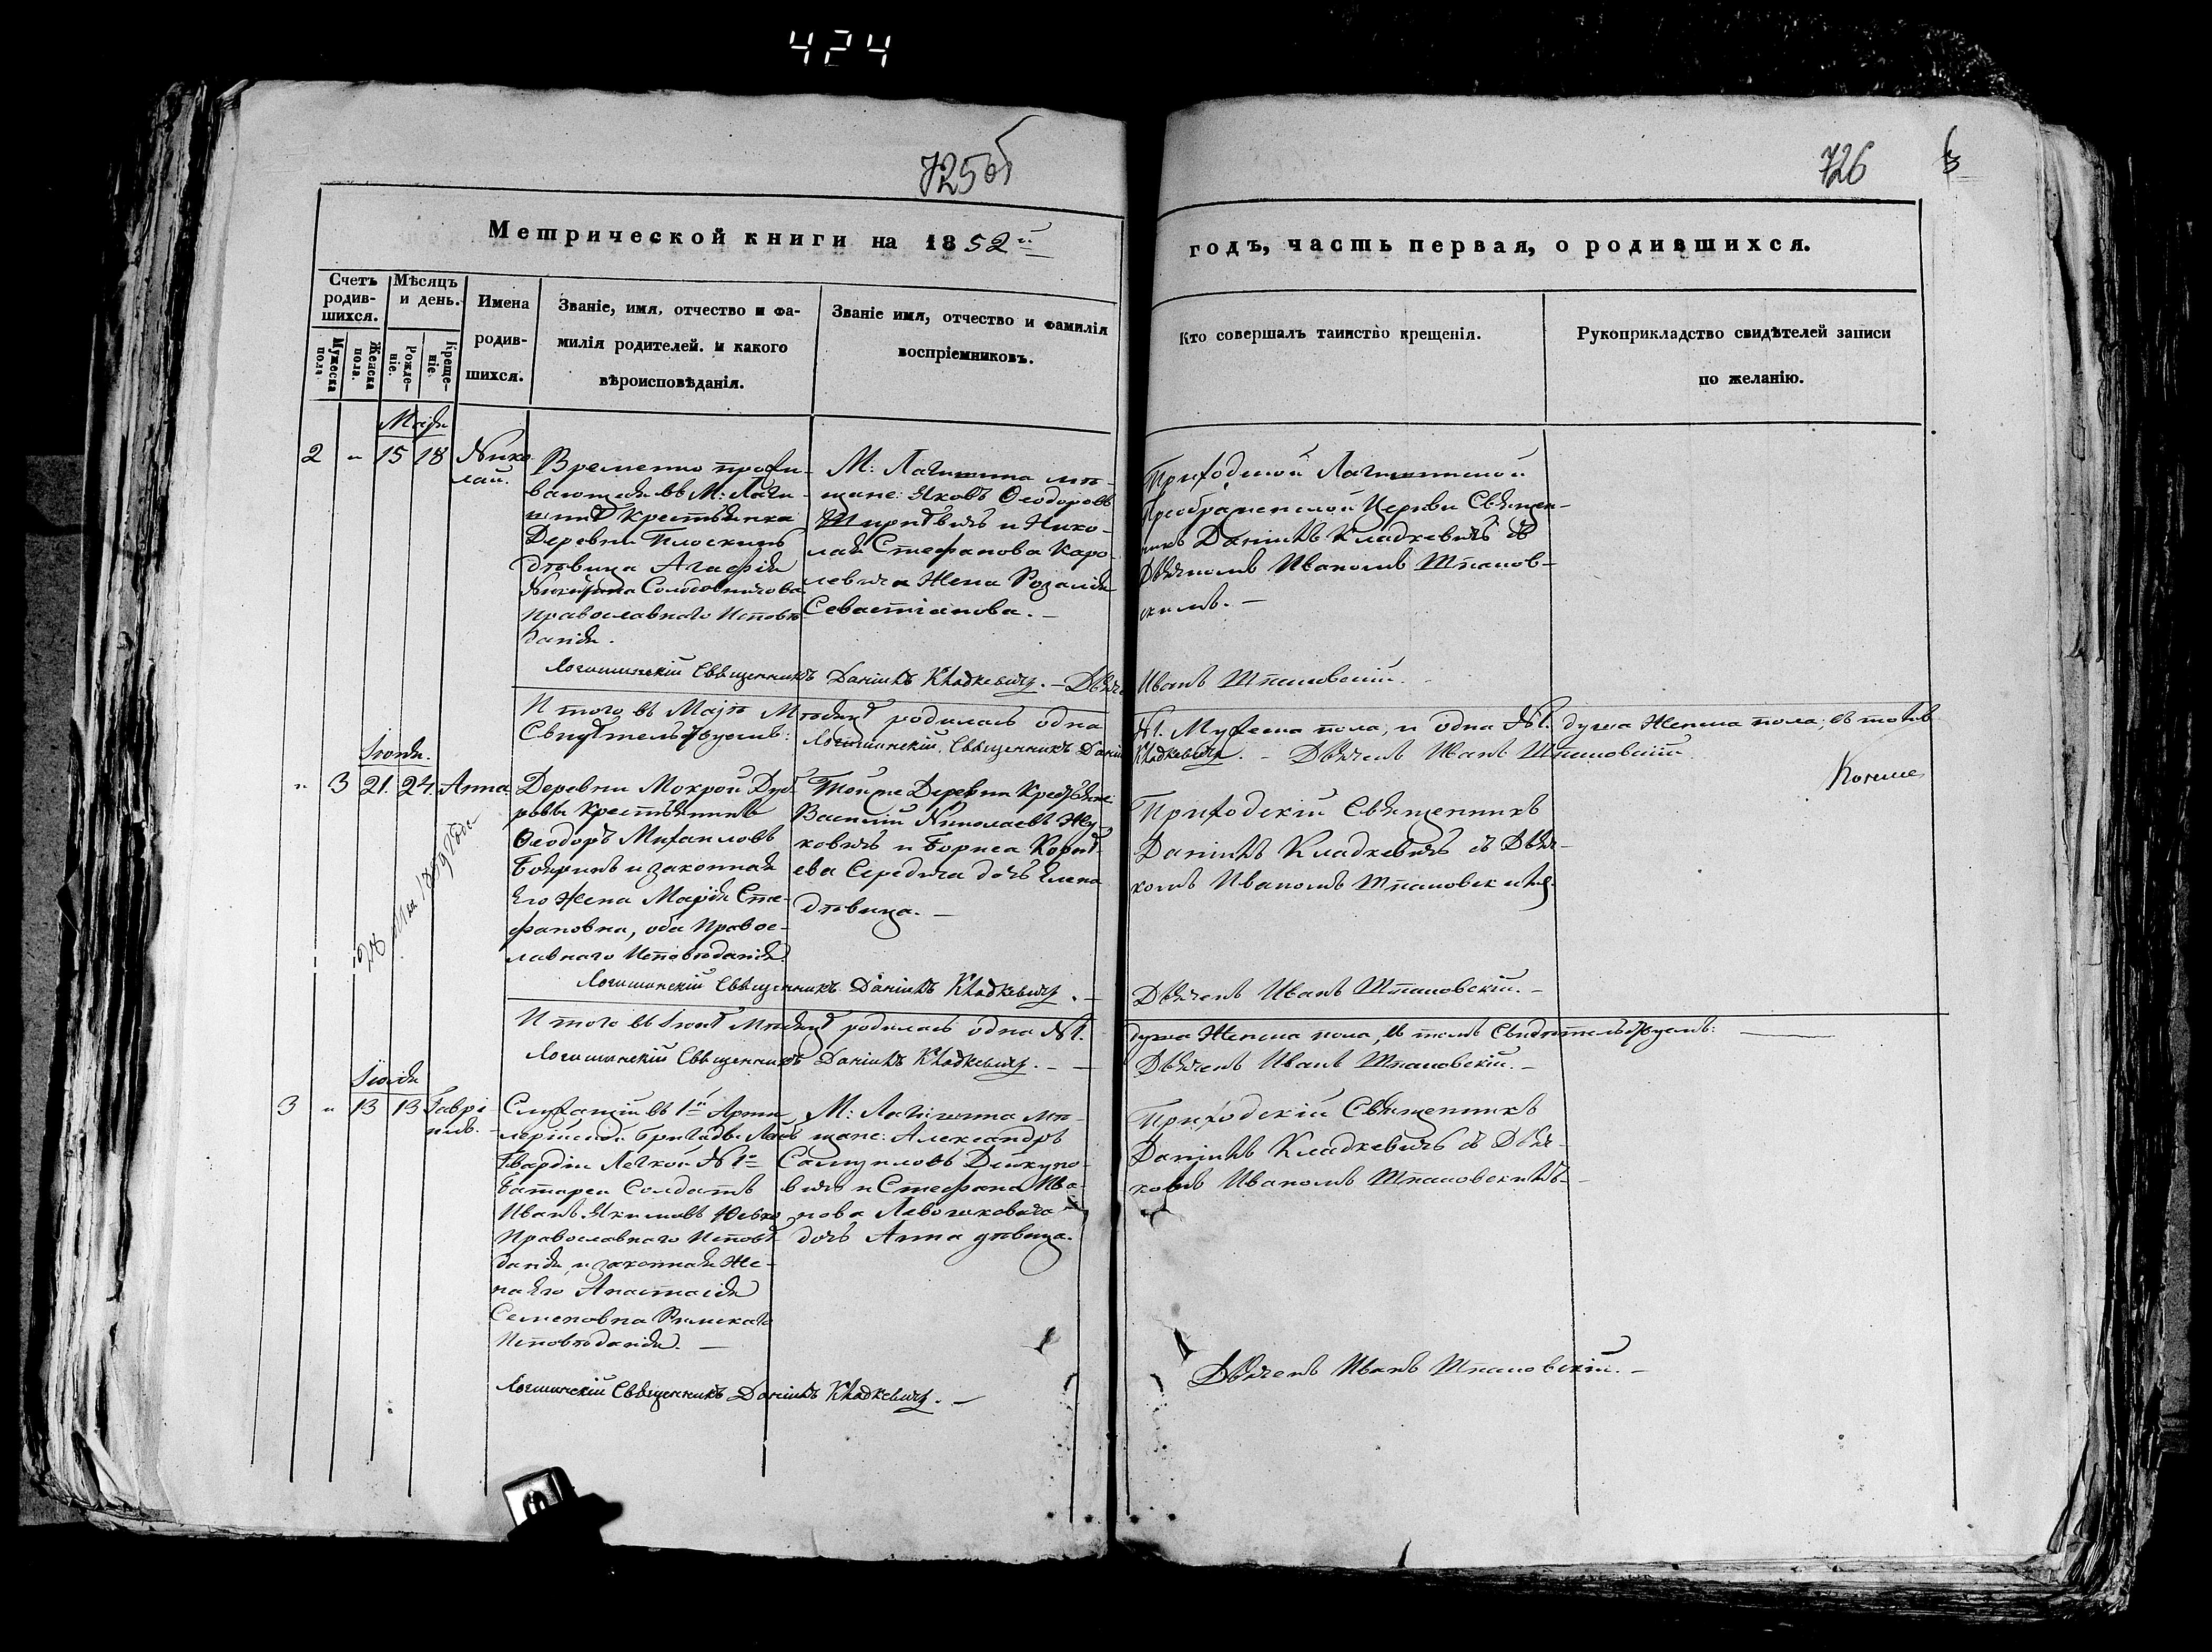 424
725об
726
Метрической книги на 1852й
годъ, часть первая, о родившихся.
Счетъ родив-
шихся.
Мужеска пола.
Женска пола.
Мѣсяцъ
и день.
Рожде-
ніе.
Креще-
ніе.
Имена
родив-
шихся.
Званіе, имя, отчество и фа-
милія родителей. и какого
вѣроисповѣданія.
Званіе имя, отчество и фамилія
воспріемниковъ.
Кто совершалъ таинство крещенія.
Рукоприкладство свидѣтелей записи
по желанію.
Маія
2 " 15 18 Нико-
лай.
Временно прожи-
вающая въ М: Логи-
шинѣ крестьянка
Деревни Плоскинь
дѣвица Агафія
Солодовникова
Православнаго Исповѣ
данія.
М: Логишина мѣ-
щане: Яковъ Ѳеодоровъ
Ширѣвичъ и Нико-
лая Стефанова Каро-
левича Жена Розалія
Севастіанова. —
Приходской Логишинской
Преображенской Церкви Священ-
никъ Даніилъ Кладкевичъ съ
Дьячкомъ Иваномъ Шпанов-
скимъ. —
Логишинскій Священникъ Даніилъ Кладкевичъ. — Дьячекъ
Иванъ Шпановскій.
Итого въ Маіи Мѣсяцѣ родилась одна
№1. Мужеска пола, и одна №1. душа Женска пола, въ томъ
Свидѣтельствуемъ: Логишинскій Священникъ Даніилъ
Кладкевичъ. — Дьячекъ Иванъ Шпановскій.
Іюня.
" 3 21. 24. Анна.
Деревни Мокрой Дуб-
ровы Крестьянинъ
Ѳеодоръ Михаиловъ
Бояринъ и законная
Его Жена Марія Сте-
фановна, оба Правос-
лавнаго Исповѣданія
Тойже Деревни Крестьяне
Василій Николаевъ Жу-
ковичъ и Бориса Корнѣ-
ева Середича дочь Елена
дѣвица. —
Приходскій Священникъ
Даніилъ Кладкевичъ съ Дьяч-
комъ Иваномъ Шпановскимъ.
Логишинскій Священникъ Даніилъ Кладкевичъ. —
Дьячекъ Иванъ Шпановскій. —
Итого въ Іюнѣ Мѣсяцѣ родилась одна №1.
душа Женска пола, въ томъ Свидѣтельствуемъ:
Логишинскій Священникъ Даніилъ Кладкевичъ. —
Дьячекъ Иванъ Шпановскій. —
Іюля
3 " 13 13 Гаврі-
илъ.
Служащій въ 1й Арти-
лерійской Бригады Лейбъ
Гвардіи Легкой №1й
Батареи Солдатъ
Иванъ Якимовъ Юсько
Православнаго Исповѣ
данія, и законная Же-
на Его Анастасія
Семеновна Римскаго
Исповѣданія. —
М: Логишина мѣ-
щане: Александръ
Самуиловъ
вичъ и Стефана Ива-
нова
дочь Анна дѣвица.
Приходскій Священникъ
Даніилъ Кладкевичъ съ Дьяч-
комъ Иваномъ Шпановскимъ. —
Логишинскій Священникъ Даніилъ Кладкевичъ. —
Дьячекъ Иванъ Шпановскій. —